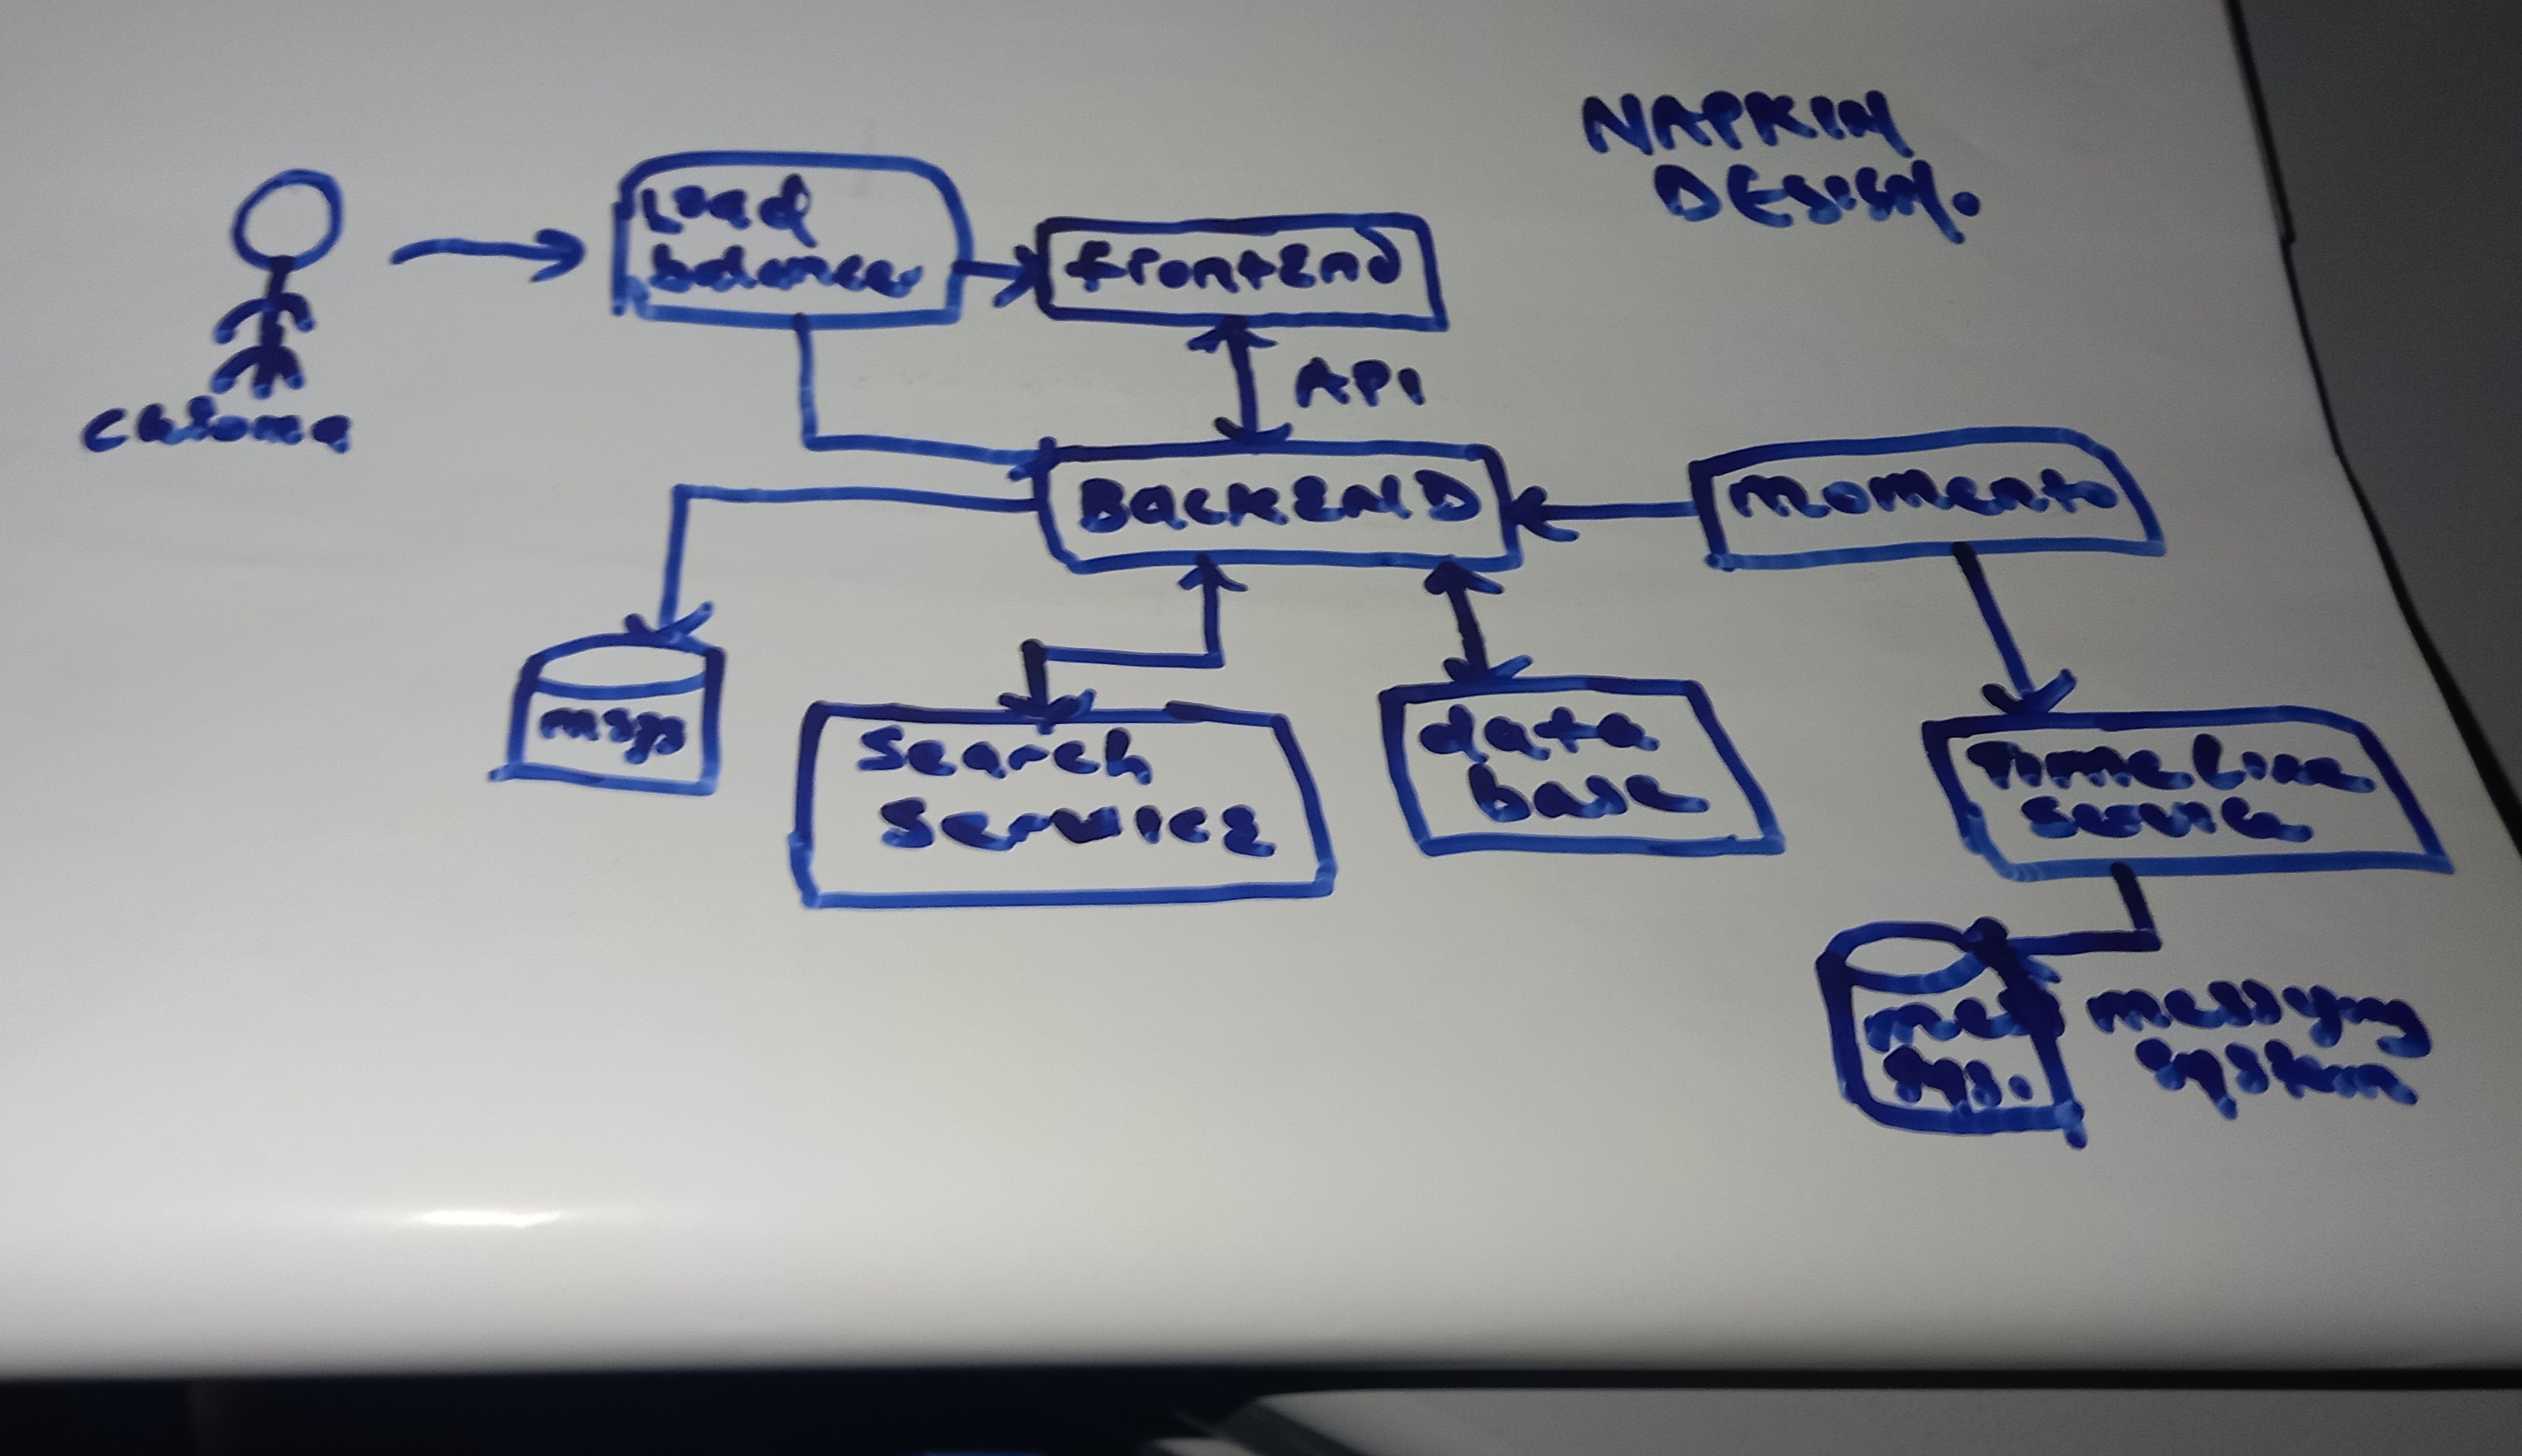 NAPKIN
DESIGN.
Load
balancer
frontend
API
Chioma
BACKEND
momento
msgs
Search
Service
data
base
Timeline
Service
mes
sys.
messging
system